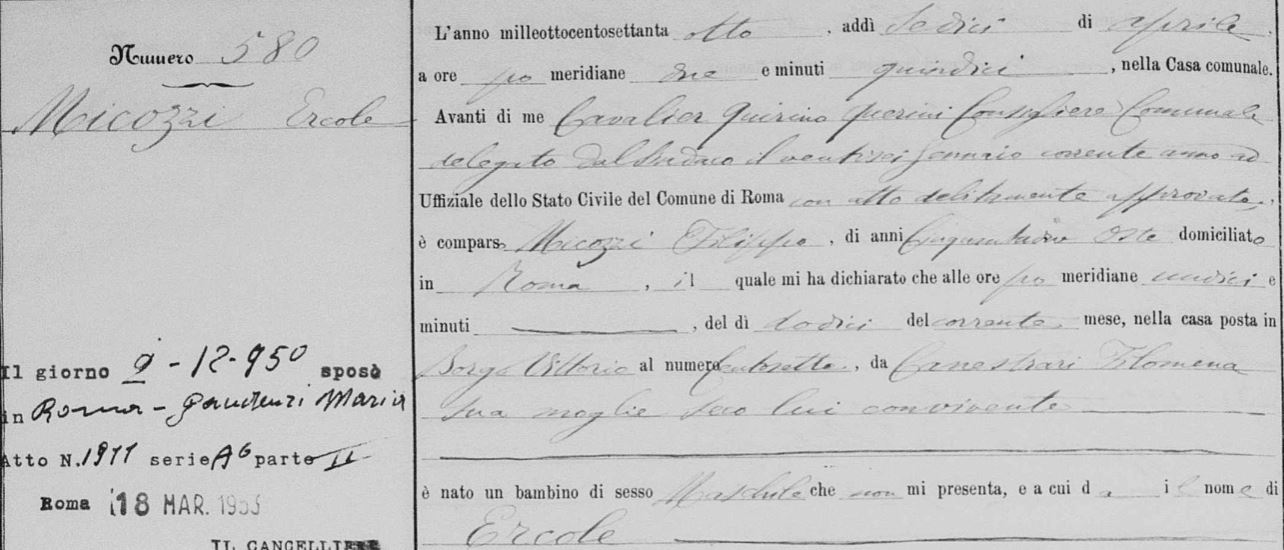 Numero 580
Micozzi Ercole
Il giorno 9-12-950 sposò
in Roma - Gaudenzi Maria
Atto N. 1911 serie A6 parte II
Roma 18 MAR. 1953
IL CANCELLIERE
L'anno milleottocentosettanta otto, addì Sedici di aprile,
a ore po meridiane due e minuti quindici, nella Casa comunale.
Avanti di me Cavalier Quirino Querini Consigliere Comunale
delegato dal Sindaco il ventisei Gennaio corrente anno ad
Uffiziale dello Stato Civile del Comune di Roma con atto debitamente approvato,
è compars Micozzi Filippo, di anni Oste domiciliato
in Roma, il quale mi ha dichiarato che alle ore po meridiane undici e
minuti ———, del dì dodici del corrente mese, nella casa posta in
Borgo Vittorio al numero Centosette, da Canestrari Filomena
sua moglie seco lui convivente
è nato un bambino di sesso Maschile che non mi presenta, e a cui da il nome di
Ercole